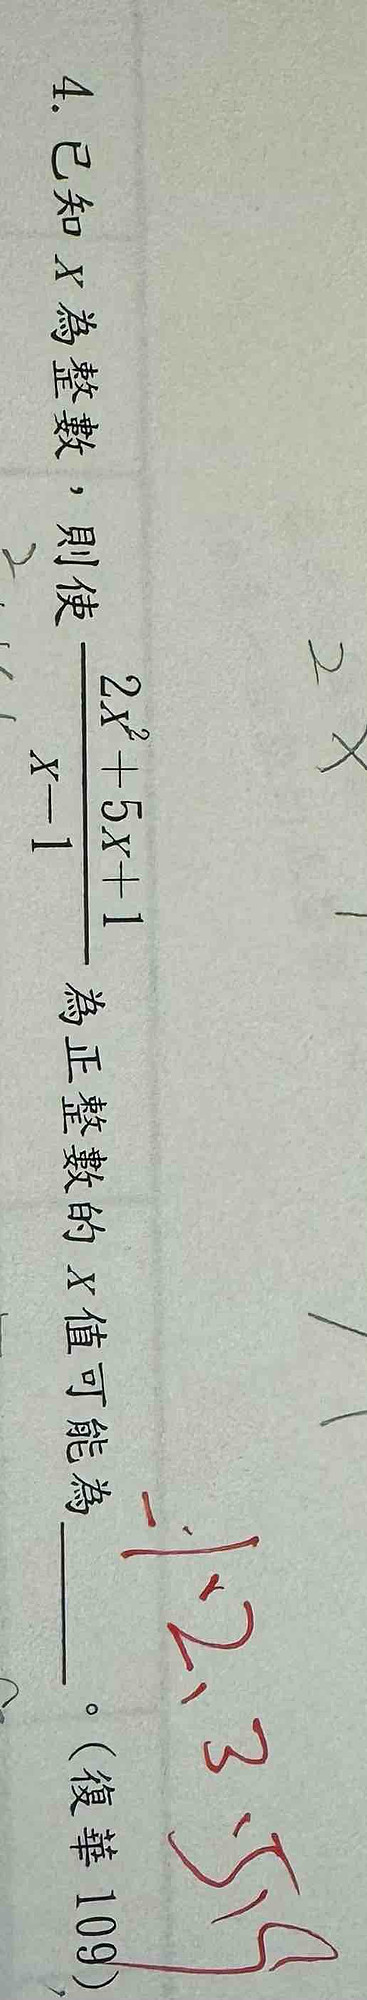 4. 已知 x 為整數，則使 \frac{2x^2+5x+1}{x-1} 為正整數的 x 值可能為______。(復華 109)
-1、2、3、5、9
2 x